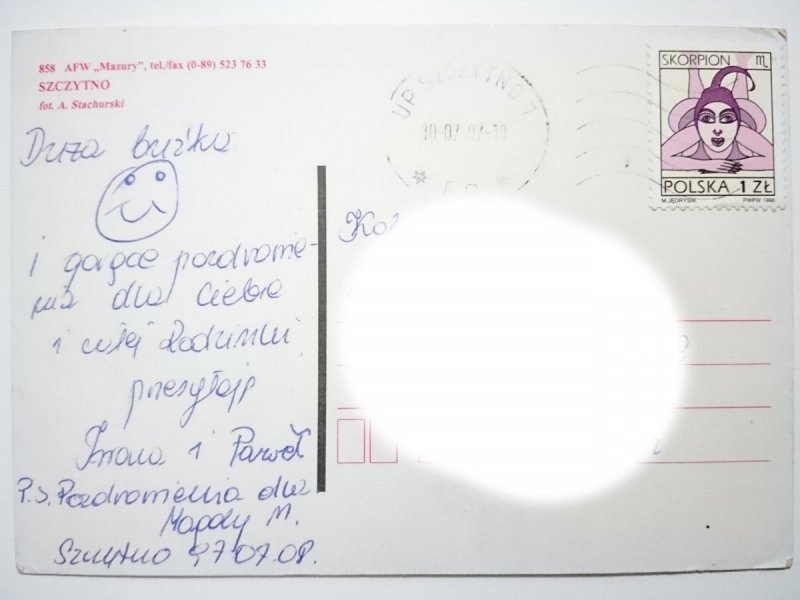 858 AFW „Mazury”, tel./fax (0-89) 523 76 33
SZCZYTNO
fot. A. Stachurski
UP SZCZYTNO 1
10-07-97-19
SKORPION
POLSKA 1 ZŁ
M. JĘDRYSIK PWPW 1996
Duża buźka
i gorące pozdrowie-
nia dla Ciebie
i całej Rodzinki
przesyłają
Iwona i Paweł
P.S. Pozdrowienia dla
Magdy M.
Szczytno 97.07.08.